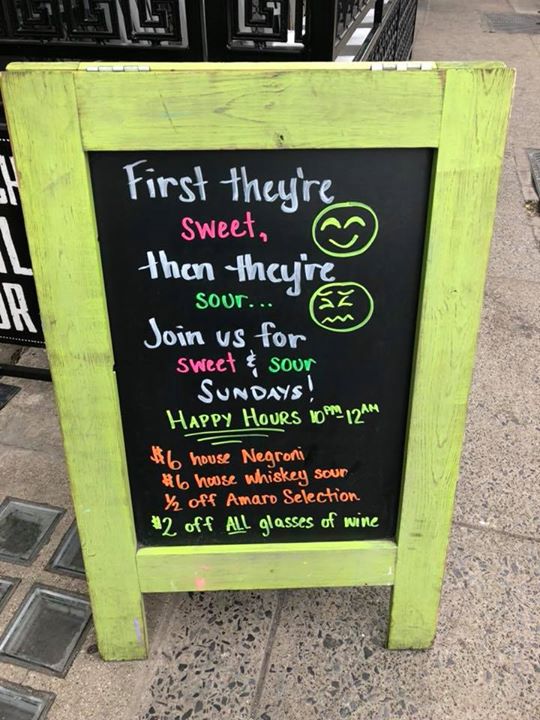 First they're
sweet,
then they're
sour...
Join us for
sweet & sour
SUNDAYS!
HAPPY HOURS 10PM-12AM
$6 house Negroni
$6 house whiskey sour
½ off Amaro Selection
$2 off ALL glasses of wine